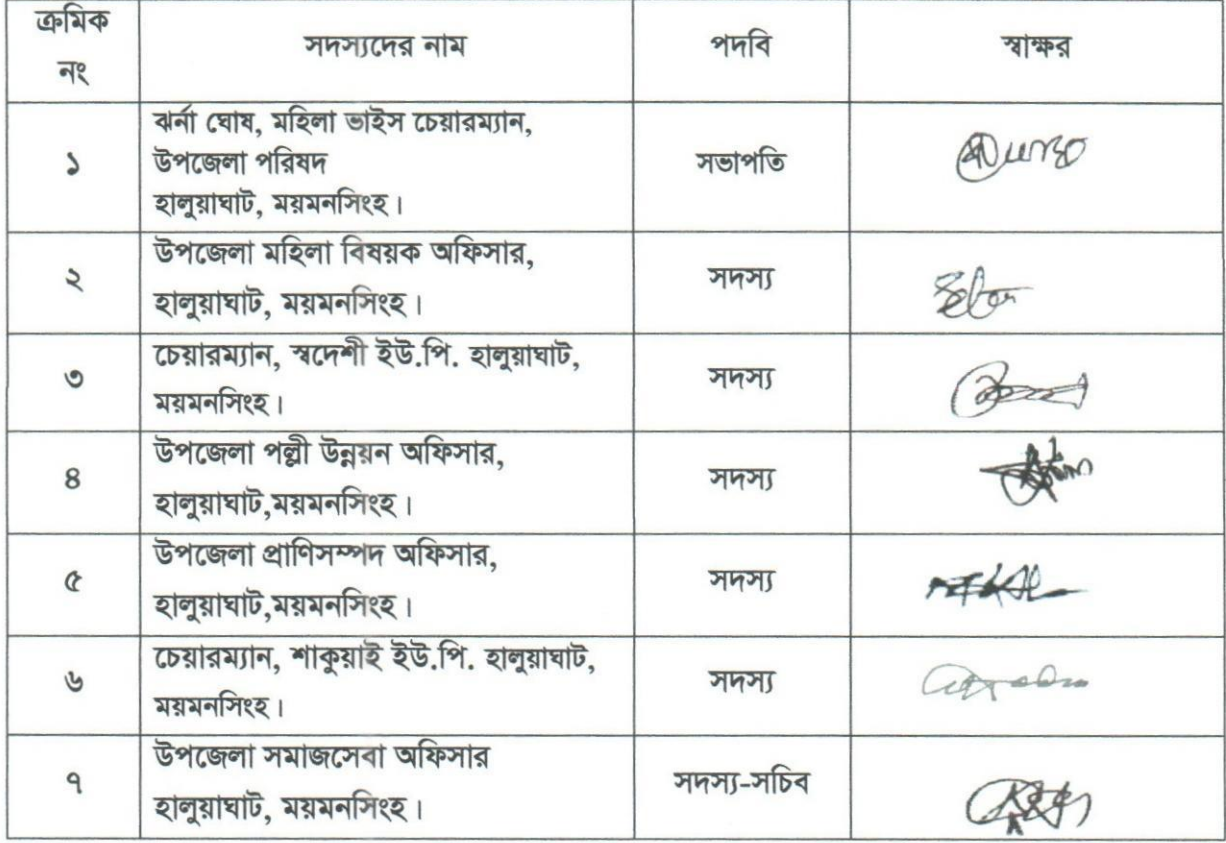 ক্রমিক
নং
সদস্যদের নাম
পদবি
স্বাক্ষর
১
ঝর্না ঘোষ, মহিলা ভাইস চেয়ারম্যান,
উপজেলা পরিষদ
হালুয়াঘাট, ময়মনসিংহ।
সভাপতি
২
উপজেলা মহিলা বিষয়ক অফিসার,
হালুয়াঘাট, ময়মনসিংহ।
সদস্য
৩
চেয়ারম্যান, স্বদেশী ইউ.পি. হালুয়াঘাট,
ময়মনসিংহ।
সদস্য
৪
উপজেলা পল্লী উন্নয়ন অফিসার,
হালুয়াঘাট,ময়মনসিংহ।
সদস্য
৫
উপজেলা প্রাণিসম্পদ অফিসার,
হালুয়াঘাট,ময়মনসিংহ।
সদস্য
৬
চেয়ারম্যান, শাকুয়াই ইউ.পি. হালুয়াঘাট,
ময়মনসিংহ।
সদস্য
৭
উপজেলা সমাজসেবা অফিসার
হালুয়াঘাট, ময়মনসিংহ।
সদস্য-সচিব